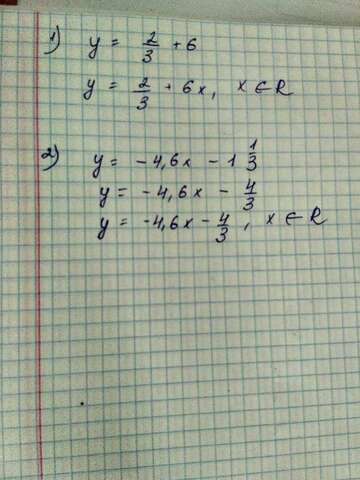 1) y = 2/3 + 6
y = 2/3 + 6x, x ∈ R
2) y = -4,6x - 1 1/3
y = -4,6x - 4/3
y = -4,6x - 4/3, x ∈ R